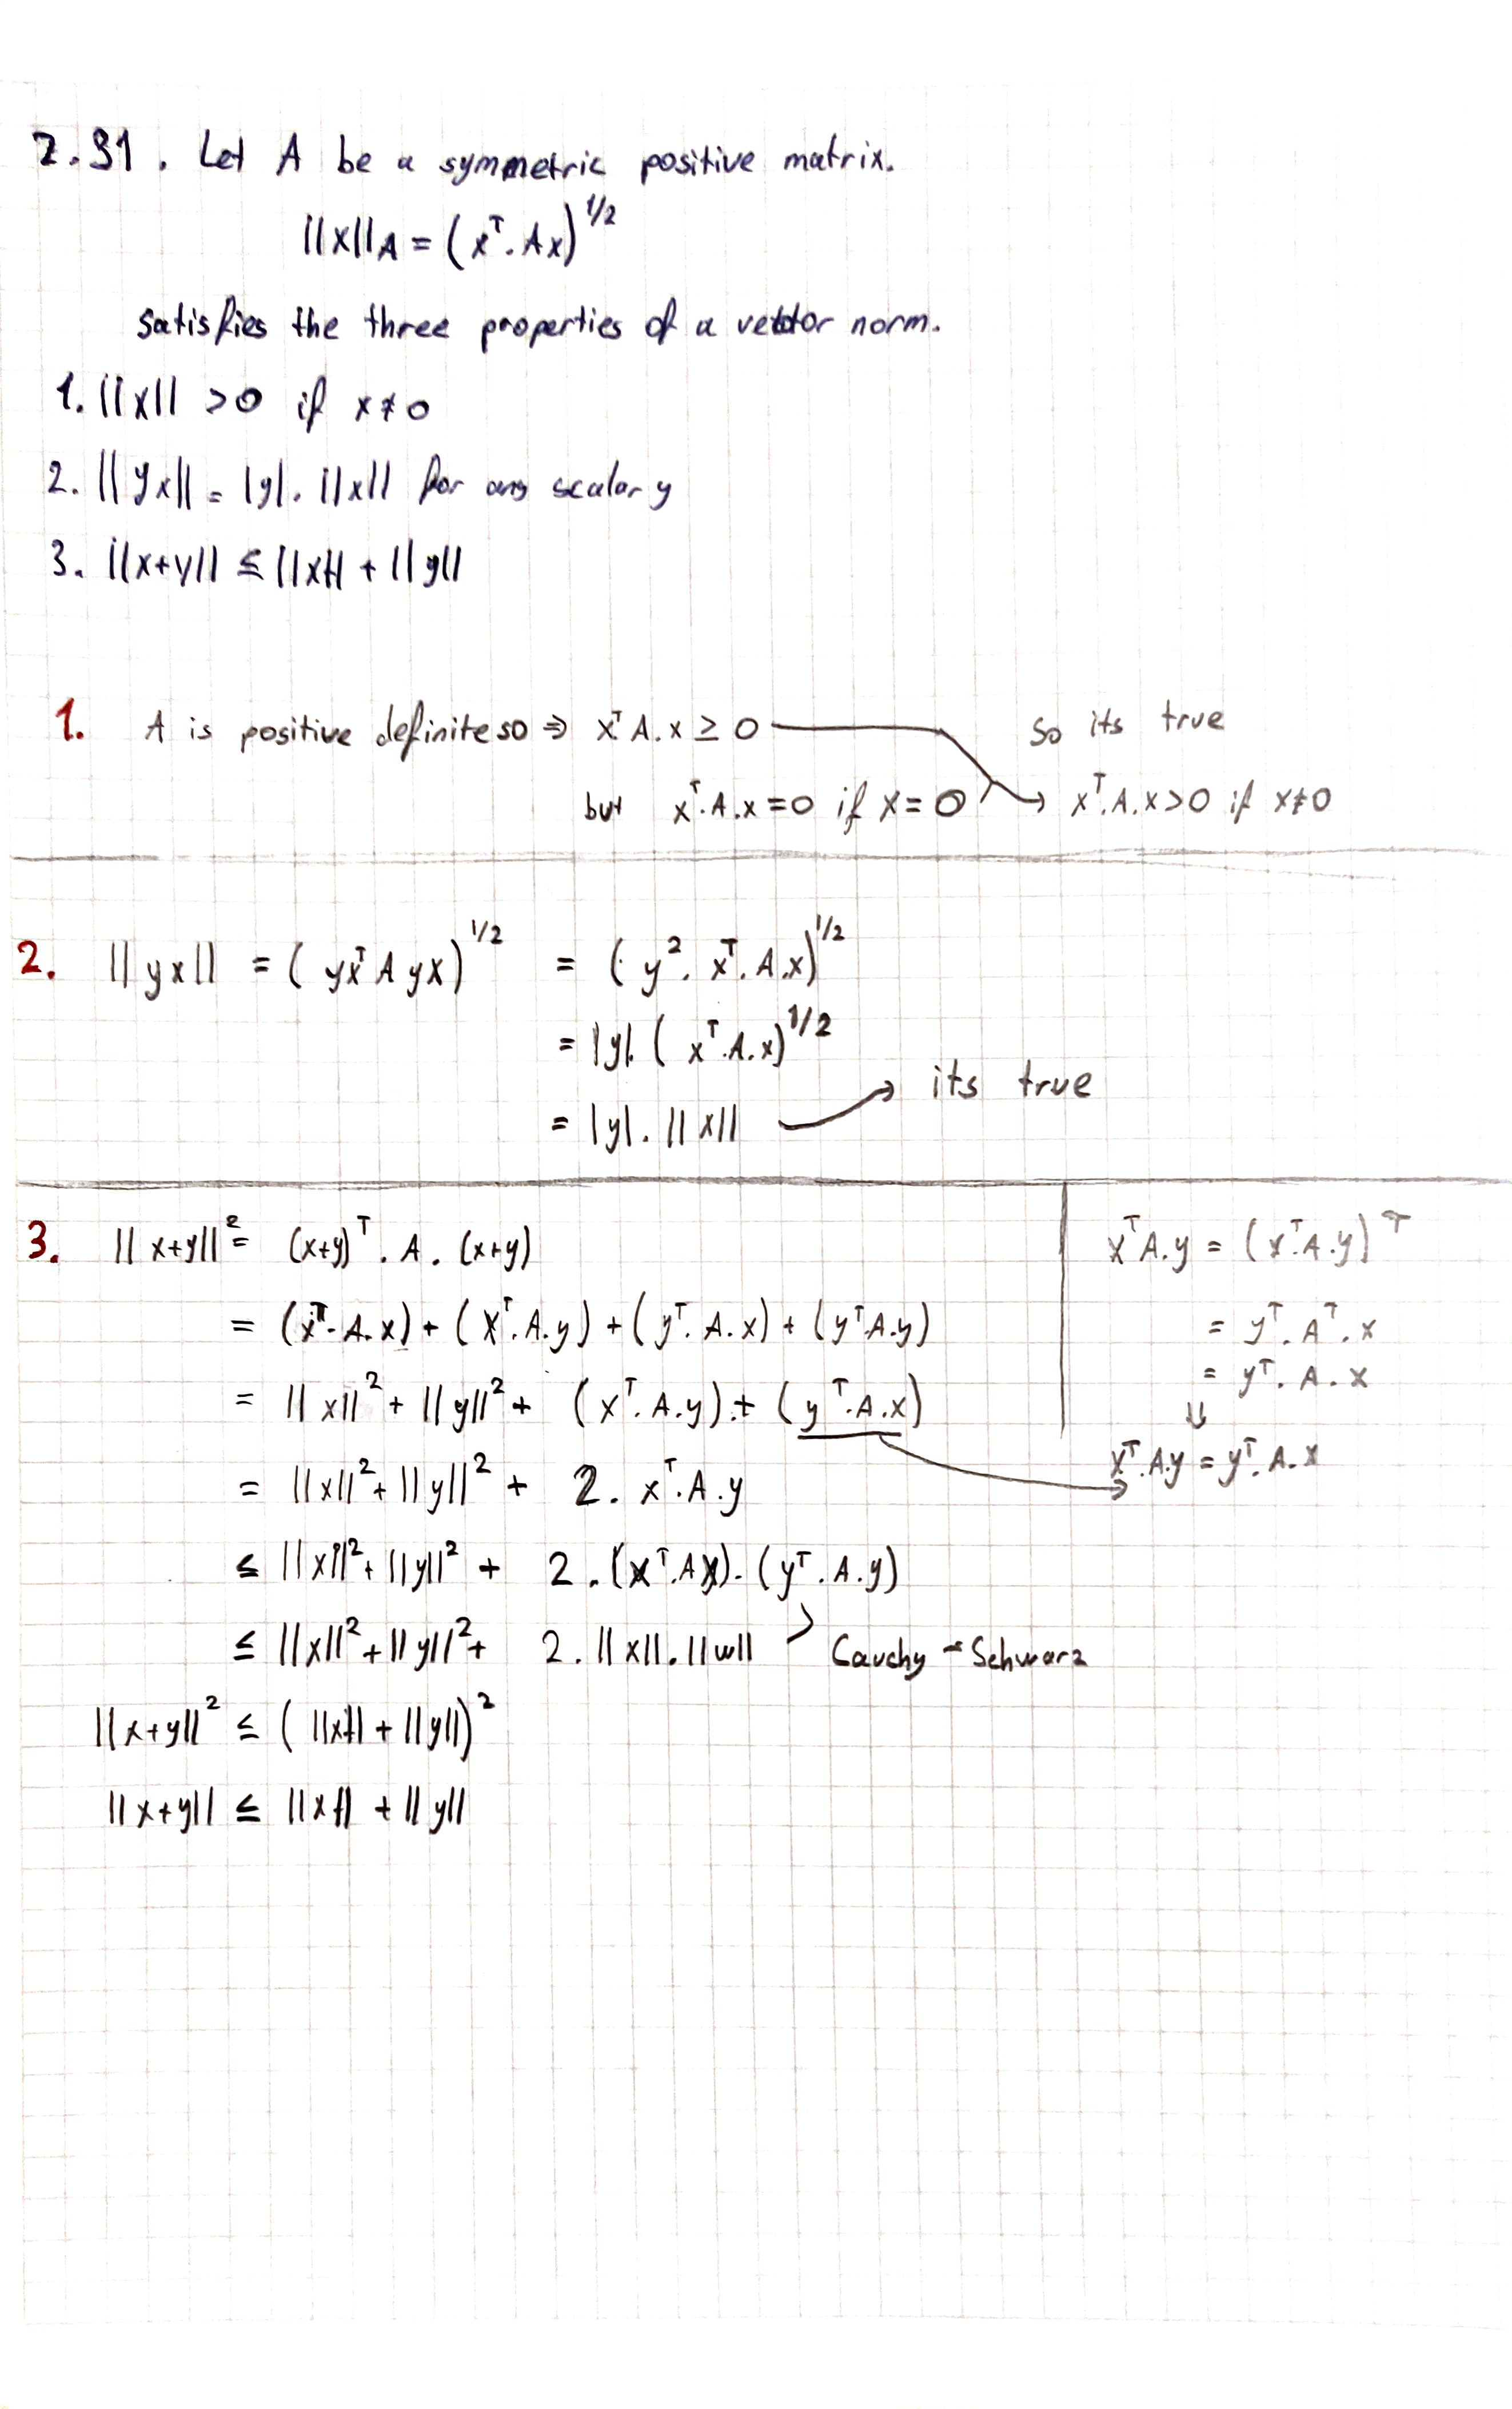 2.31. Let A be a symmetric positive matrix.
||x||A = (xᵀ.Ax)^1/2
satisfies the three properties of a vector norm.
1. ||x|| >0 if x≠0
2. ||yx|| = |y|.||x|| for any scalar y
3. ||x+y|| ≤ ||x|| + ||y||
1. A is positive definite so ⇒ xᵀA.x ≥ 0 So its true
but xᵀ.A.x=0 if x=0 → xᵀ.A.x>0 if x≠0
2. ||yx|| = (yxᵀAyx)^1/2 = (y². xᵀ.A.x)^1/2
= |y|.(xᵀ.A.x)^1/2
= |y|.||x|| → its true
3. ||x+y||² = (x+y)ᵀ.A.(x+y)
= (xᵀ.A.x)+(xᵀ.A.y)+(yᵀ.A.x)+(yᵀA.y)
= ||x||²+||y||²+ (xᵀ.A.y)+(yᵀ.A.x)
= ||x||²+||y||²+ 2.xᵀ.A.y
≤ ||x||²+||y||²+ 2.(xᵀ.Ax).(yᵀ.A.y)
≤ ||x||²+||y||²+ 2.||x||.||w|| > Cauchy-Schwarz
||x+y||² ≤ (||x||+||y||)²
||x+y|| ≤ ||x||+||y||
xᵀA.y = (xᵀ.A.y)ᵀ
= yᵀ.Aᵀ.x
= yᵀ.A.x
⇓
xᵀ.A.y = yᵀ.A.x